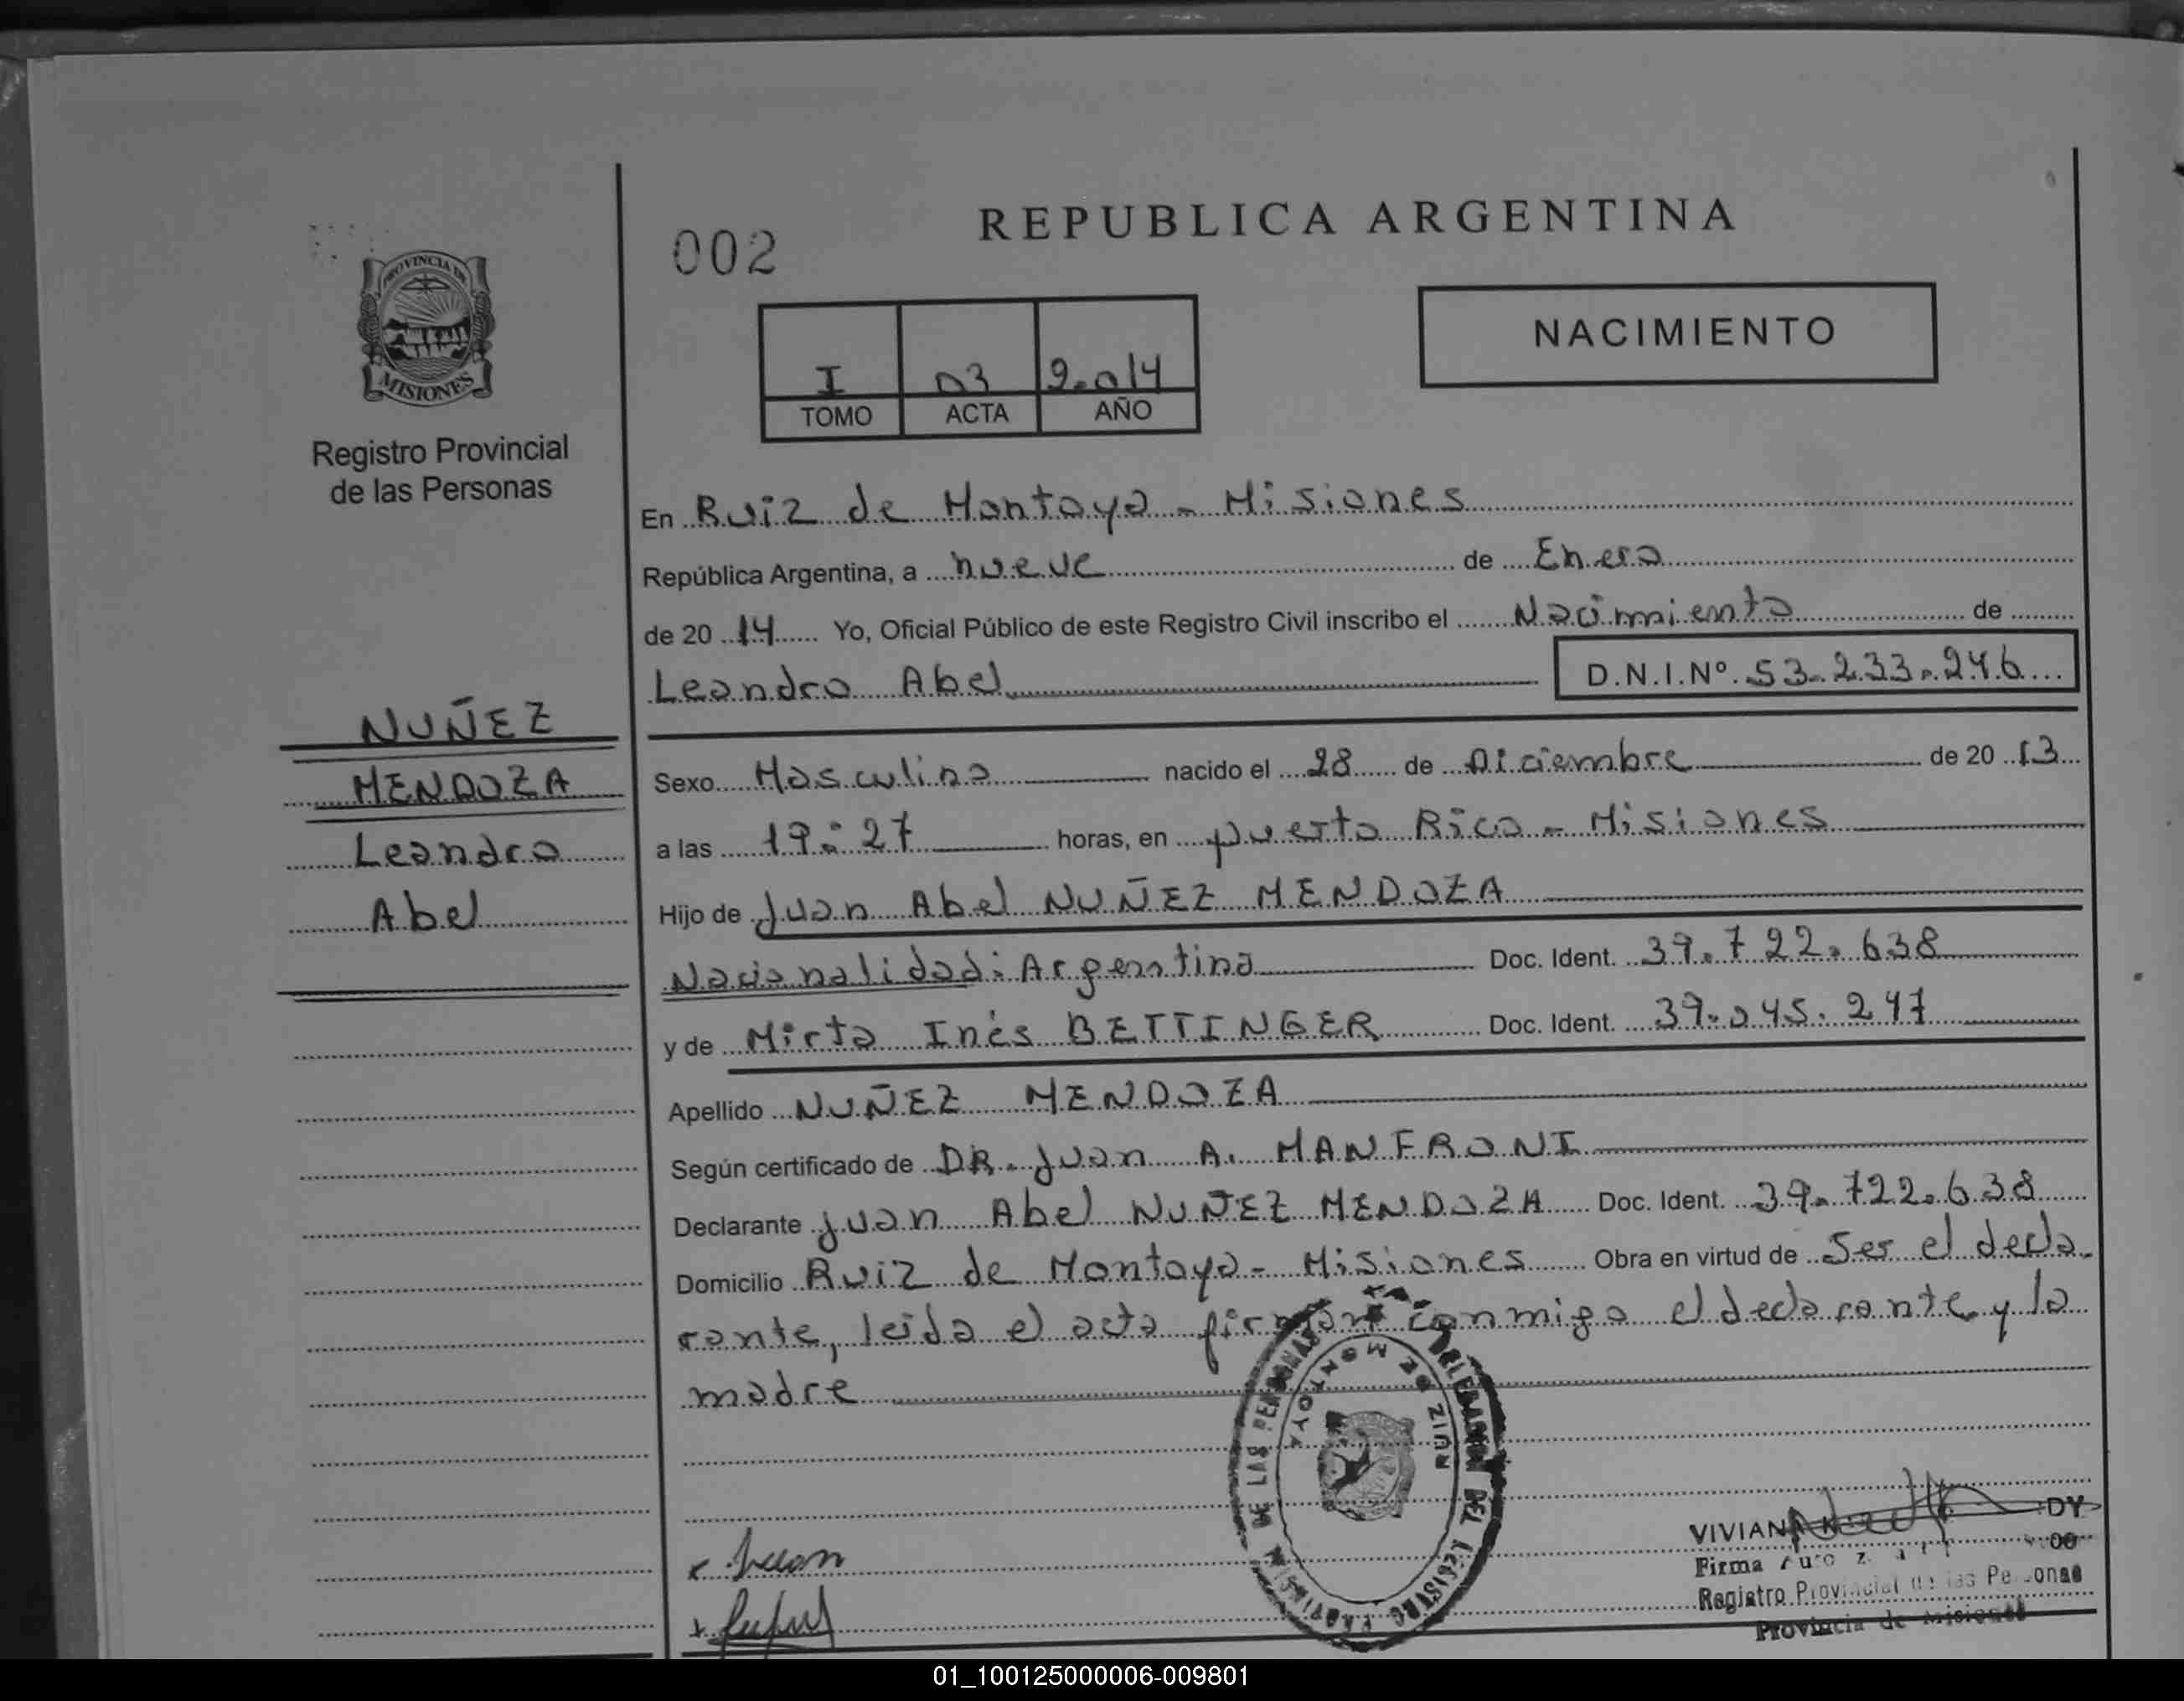 PROVINCIA DE
MISIONES
Registro Provincial
de las Personas
NUÑEZ
MENDOZA
Leandro
Abel
002
REPUBLICA ARGENTINA
I 03 2.014
TOMO ACTA AÑO
NACIMIENTO
En Ruiz de Montoya - Misiones
República Argentina, a nueve de Enero
de 20 14 Yo, Oficial Público de este Registro Civil inscribo el Nacimiento de
Leandro Abel D.N.I.Nº. 53.233.246
Sexo Masculino nacido el 28 de Diciembre de 20 13
a las 19:27 horas, en puerto Rico - Misiones
Hijo de Juan Abel NUÑEZ MENDOZA
Nacionalidad: Argentina Doc. Ident. 39.722.638
y de Mirta Inés BETTINGER Doc. Ident. 39.045.247
Apellido NUÑEZ MENDOZA
Según certificado de DR. Juan A. MANFRONI
Declarante Juan Abel NUÑEZ MENDOZA Doc. Ident. 39.722.638
Domicilio Ruiz de Montoya - Misiones Obra en virtud de Ser el decla-
rante, leida el acta firman conmigo el declarante y la
madre
DELEGACION DEL REGISTRO PROVINCIAL DE LAS PERSONAS
RUIZ DE MONTOYA
Juan
VIVIANA DY
Firma
Registro Provincial de las Personas
Provincia de Misiones
01_100125000006-009801